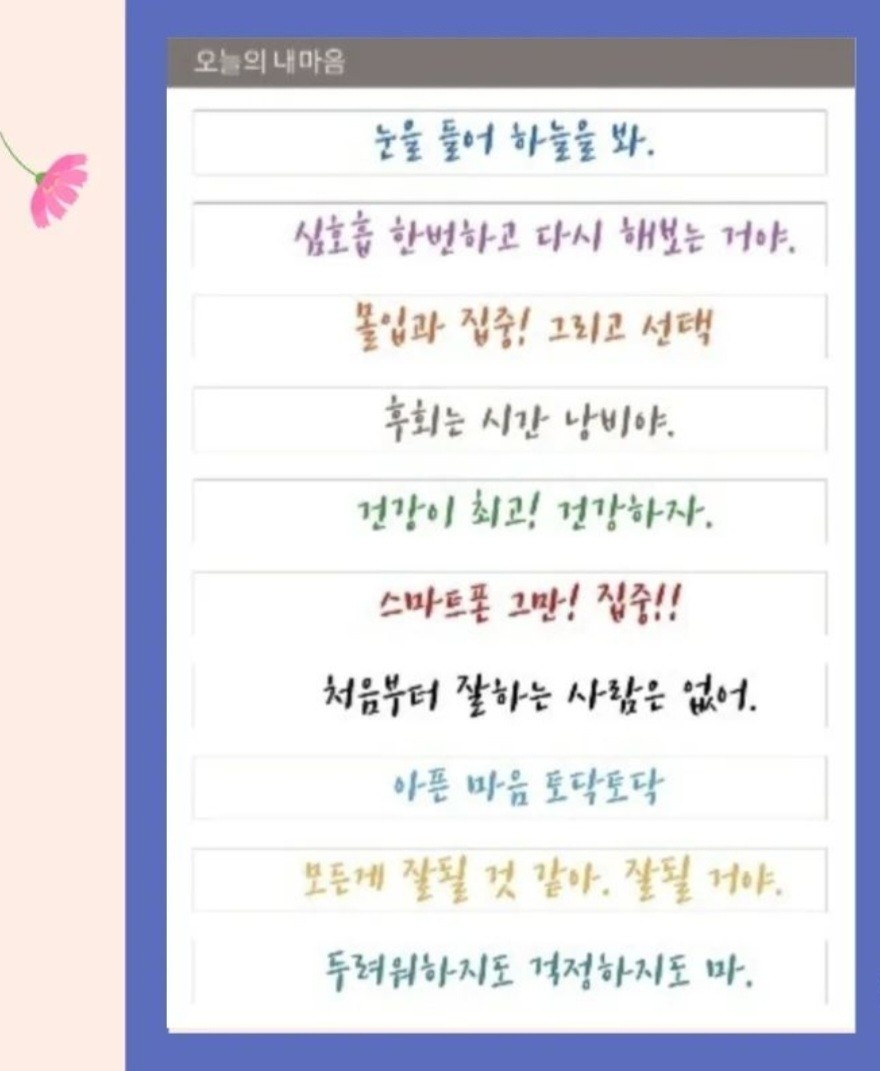 오늘의 내마음
눈을 들어 하늘을 봐.
심호흡 한번하고 다시 해보는 거야.
몰입과 집중! 그리고 선택
후회는 시간 낭비야.
건강이 최고! 건강하자.
스마트폰 그만! 집중!!
처음부터 잘하는 사람은 없어.
아픈 마음 토닥토닥
모든게 잘될 것 같아. 잘될 거야.
두려워하지도 걱정하지도 마.